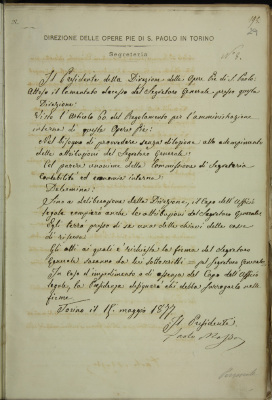 192
29
DIREZIONE DELLE OPERE PIE DI S. PAOLO IN TORINO
Segreteria
N° 8.
Il Presidente della Direzione delle Opere Pie di S. Paolo:
Atteso il lamentato decesso del Segretario Generale presso questa
Direzione
Visto l'articolo 60 del Regolamento per l'amministrazione
interna di queste Opere Pie:
Nel bisogno di provvedere senza dilazione allo adempimento
delle attribuzioni del Segretario Generale:
Col parere unanime della Commissione di Segreteria
contabilità ed economia interna:
Determina:
Sino a deliberazione della Direzione, il Capo dell'Ufficio
legale compierà anche le attribuzioni del Segretario Generale:
Egli terrà presso di se una delle chiavi della cassa
di riserva:
Gli atti ai quali è richiesta la firma del Segretario
Generale saranno da lui sottoscritti = pel Segretario Generale:
In caso d'impedimento o di assenza del Capo dell'Ufficio
legale, la Presidenza designerà chi debba surrogarlo nelle
firme.
Torino il 15 maggio 1877
Il Presidente